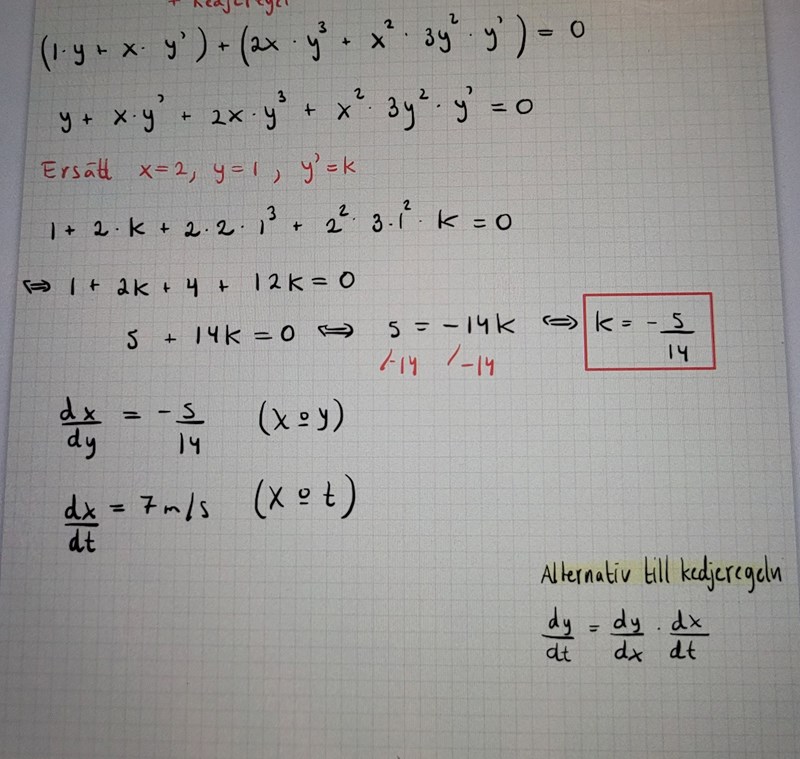 + kedjeregel
(1·y + x·y') + (2x·y³ + x²·3y²·y') = 0
y + x·y' + 2x·y³ + x²·3y²·y' = 0
Ersätt x=2, y=1, y'=k
1 + 2·k + 2·2·1³ + 2²·3·1²·k = 0
⇔ 1 + 2k + 4 + 12k = 0
5 + 14k = 0 ⇔ 5 = -14k ⇔ k = -5/14
/-14 /-14
dx/dy = -5/14 (x o y)
dx/dt = 7 m/s (x o t)
Alternativ till kedjeregeln
dy/dt = dy/dx · dx/dt